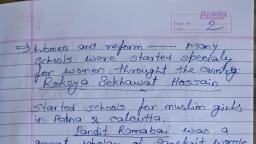 Page No. 2
Date
⇒ Women and reform — Many
schools were started specialy
for women throught the country
Rokeya Sekhawat Hossain
Started schools for muslim girls
in Patna & calcutta.
Pandit Ramabai was a
great scholar of Sanskrit